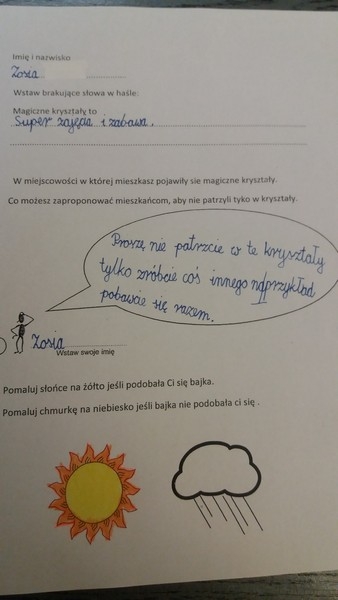 Imię i nazwisko
Zosia
Wstaw brakujące słowa w haśle:
Magiczne kryształy to
Super zajęcia i zabawa.
W miejscowości w której mieszkasz pojawiły sie magiczne kryształy.
Co możesz zaproponować mieszkańcom, aby nie patrzyli tyko w kryształy.
Proszę nie patrzcie w te kryształy
tylko zróbcie coś innego naprzykład
pobawcie się razem.
Zosia
Wstaw swoje imię
Pomaluj słońce na żółto jeśli podobała Ci się bajka.
Pomaluj chmurkę na niebiesko jeśli bajka nie podobała ci się .